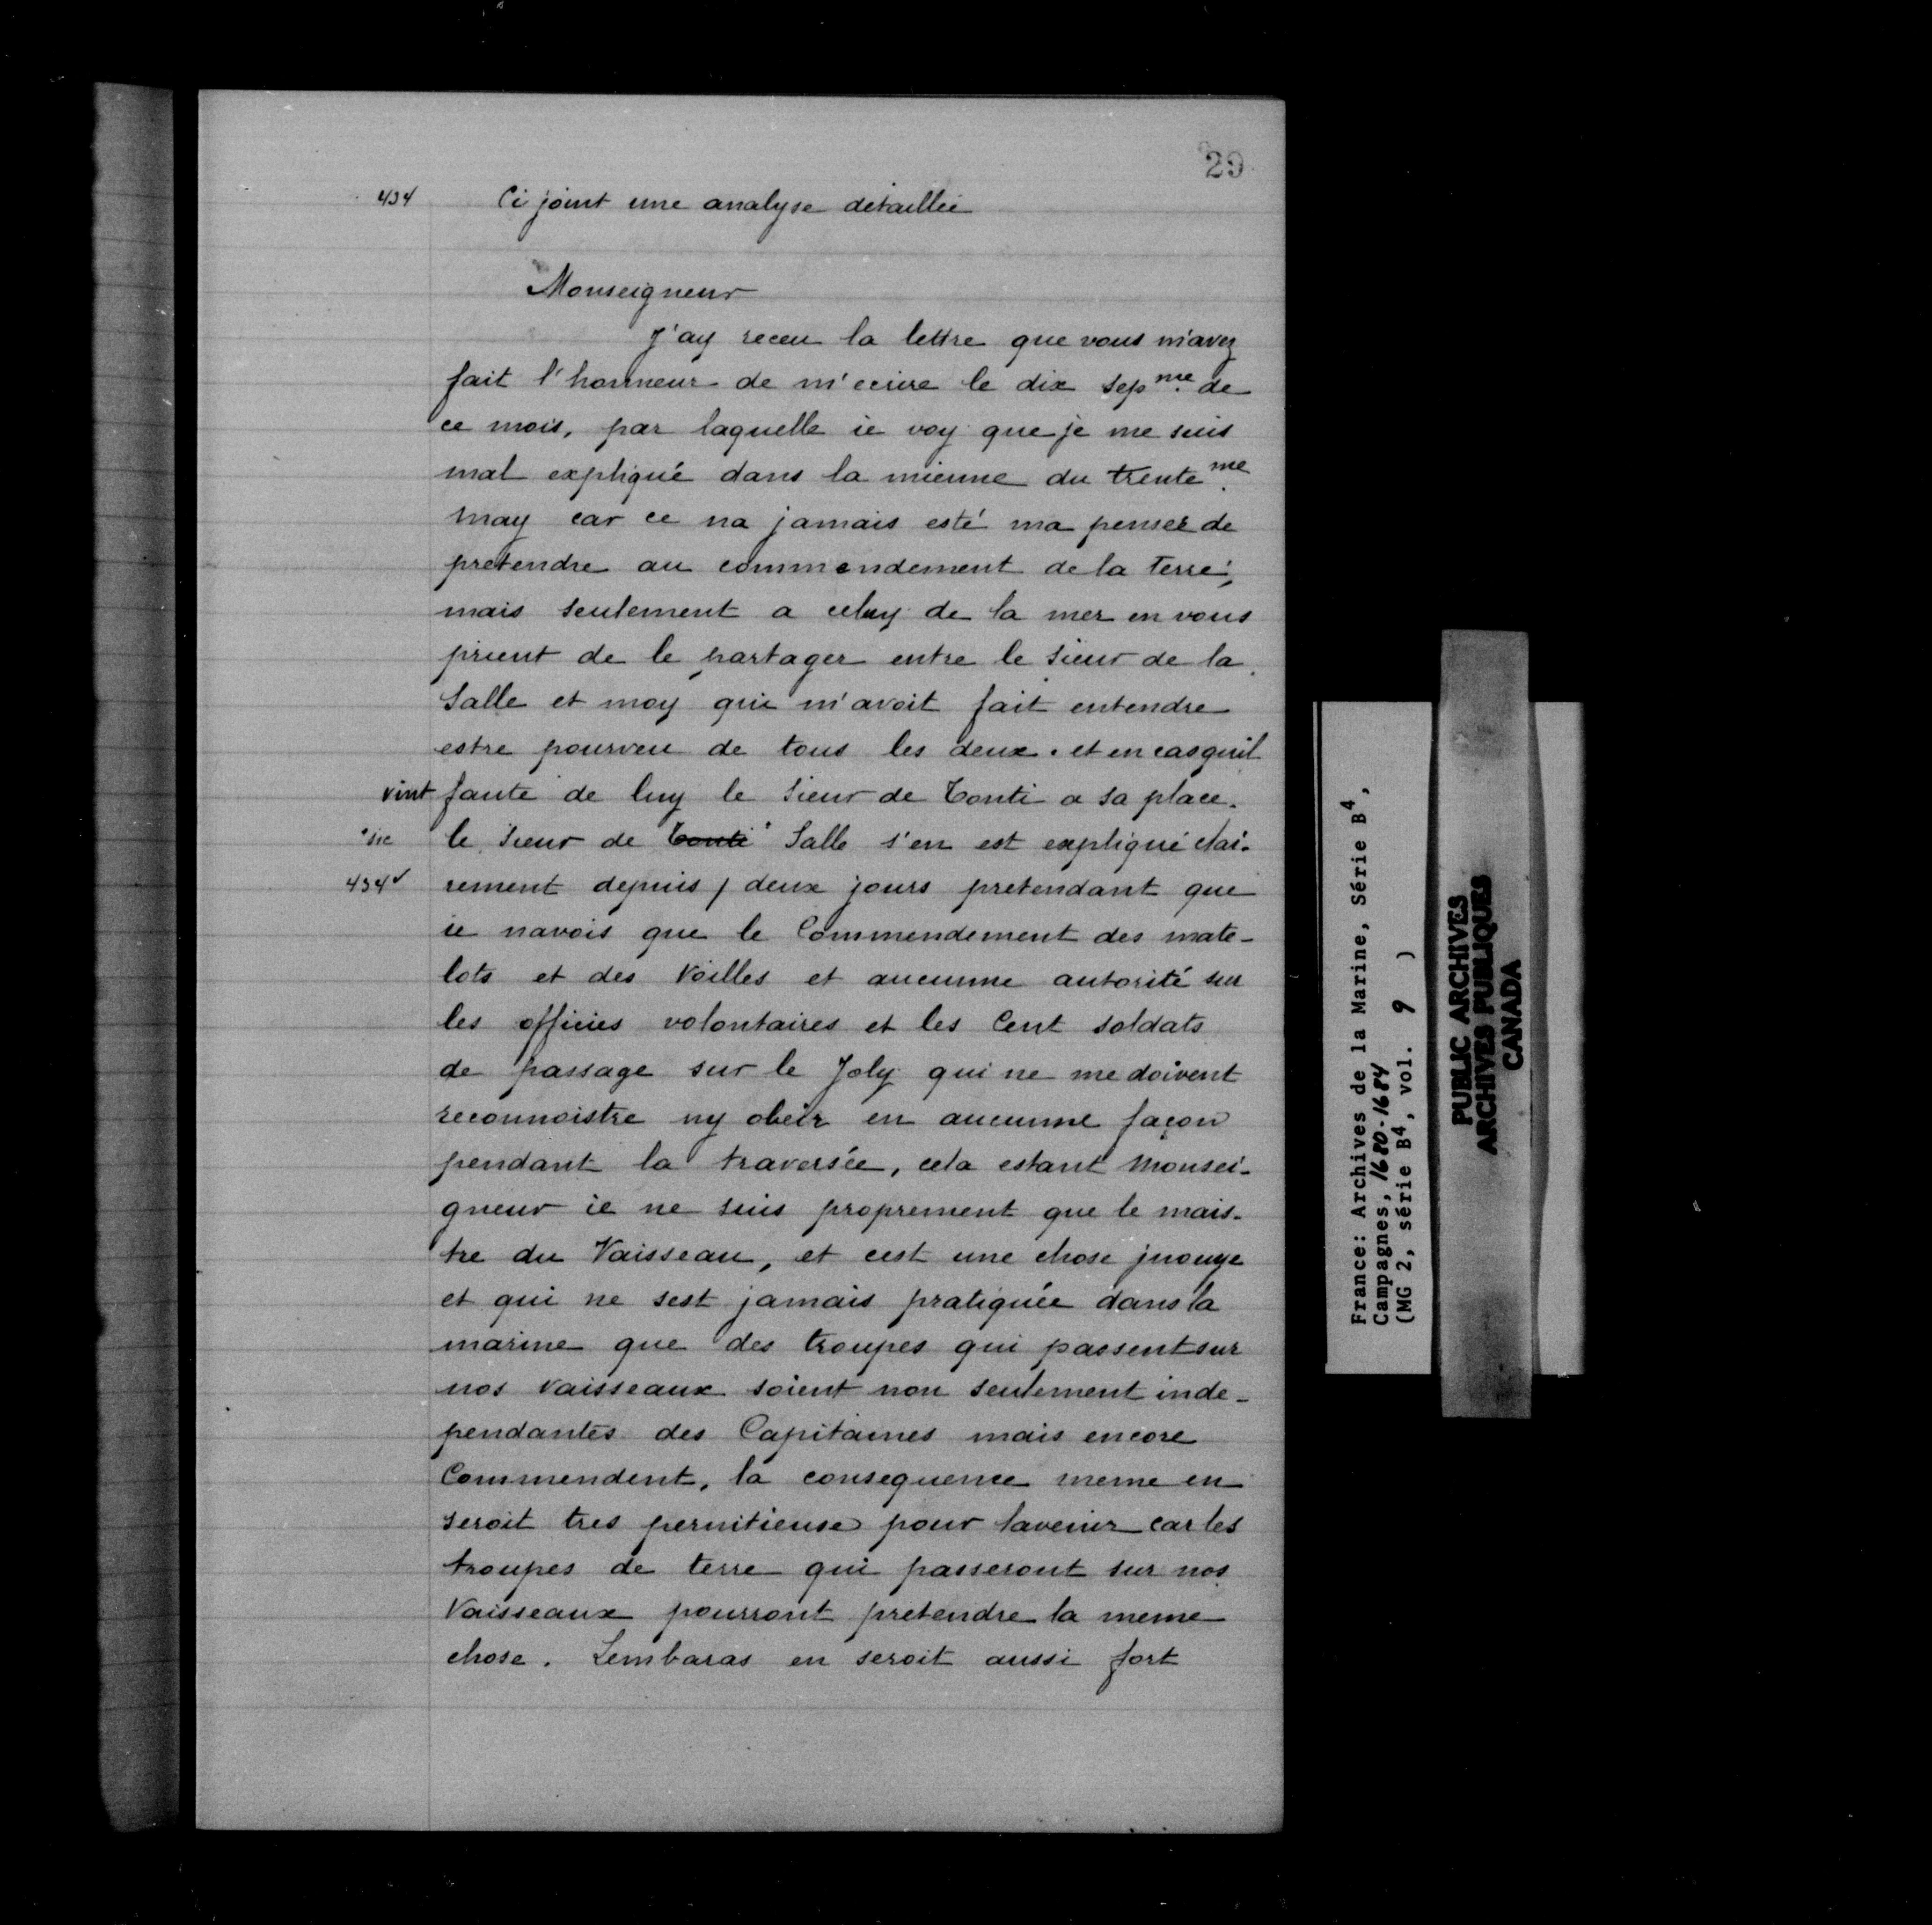 29
434 Ci joint une analyse détaillée
Monseigneur
J'ay receu la lettre que vous m'avez
fait l'honneur de m'ecrire le dix sepme de
ce mois, par laquelle ie voy que je me suis
mal expliqué dans la mienne du trenteme
may car ce na jamais esté ma pensee de
pretendre au commendement de la terre,
mais seulement a celuy de la mer en vous
prient de le partager entre le sieur de la
Salle et moy qui m'avoit fait entendre
estre pourveu de tous les deux. et en casquil
vint faute de luy le sieur de Tonti a sa place.
sic le sieur de Tonti Salle s'en est expliqué clai-
434v rement depuis / deux jours pretendant que
ie navois que le Commendement des mate-
lots et des Voilles et aucunne autorité sur
les officies volontaires et les Cent soldats
de passage sur le Joly qui ne me doivent
reconnoistre ny obeir en aucunne façon
pendant la traversée, cela estant Monsei-
gneur ie ne suis proprement que le mais-
tre du Vaisseau, et cest une chose jnouye
et qui ne sest jamais pratiquée dans la
marine que des troupes qui passent sur
nos vaisseaux soient non seulement inde-
pendantes des Capitaines mais encore
Commendent, la consequence meme en
seroit tres pernitieuse pour lavenir car les
troupes de terre qui passeront sur nos
Vaisseaux pourront pretendre la meme
chose. Lembaras en seroit aussi fort
France: Archives de la Marine, Série B4,
Campagnes, 1680-1684
(MG 2, série B4, vol. 9 )
PUBLIC ARCHIVES
ARCHIVES PUBLIQUES
CANADA